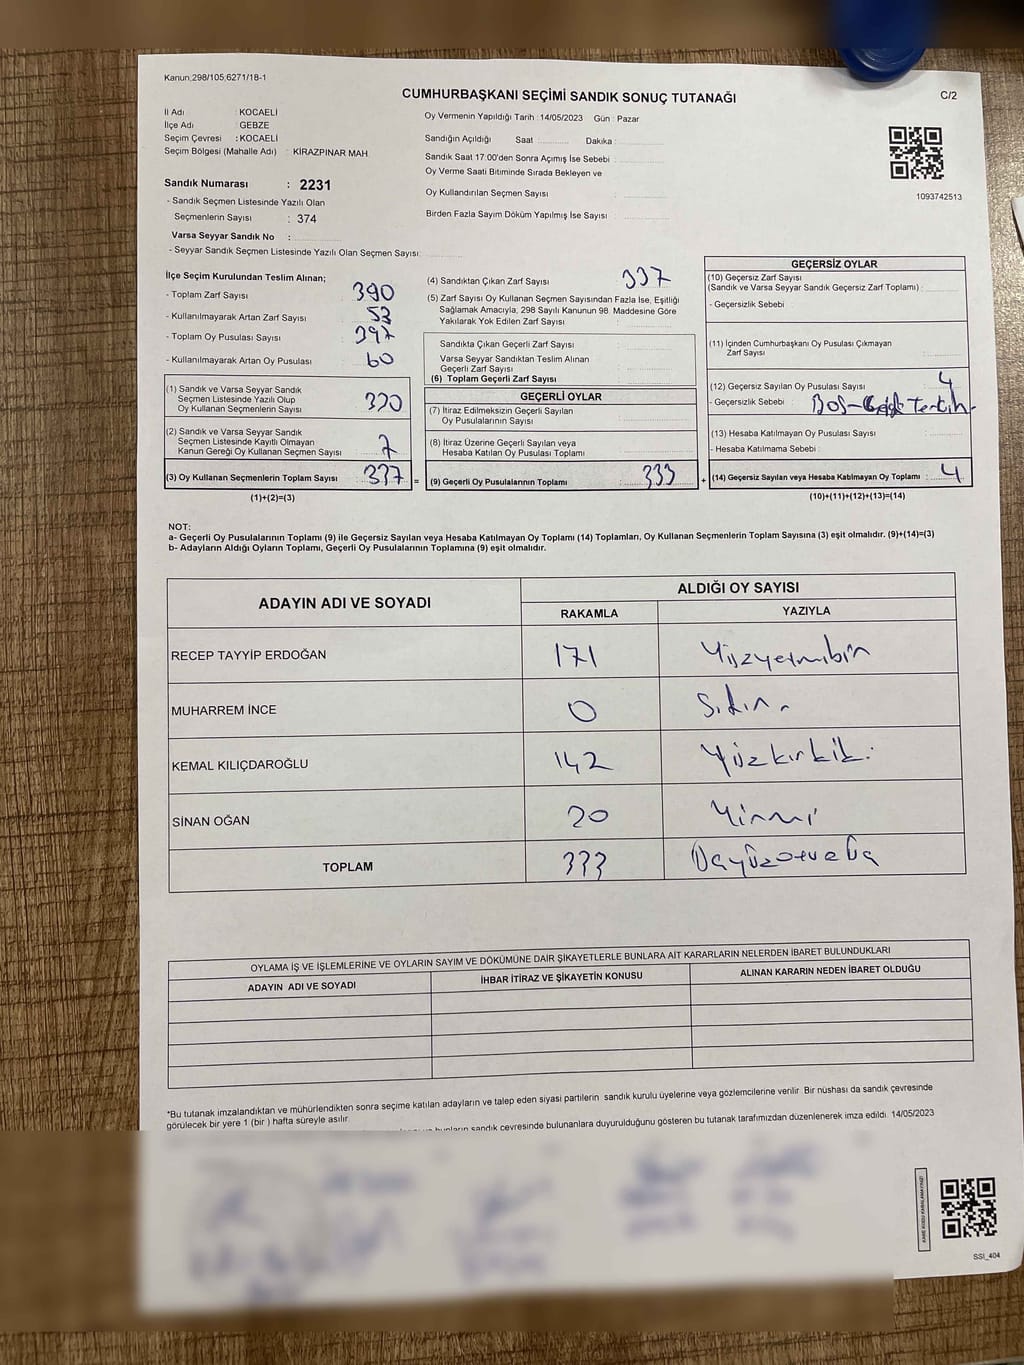 Kanun;298/105;6271/18-1
CUMHURBAŞKANI SEÇİMİ SANDIK SONUÇ TUTANAĞI
C/2
İl Adı : KOCAELİ
İlçe Adı : GEBZE
Seçim Çevresi : KOCAELİ
Seçim Bölgesi (Mahalle Adı) : KİRAZPINAR MAH
Sandık Numarası : 2231
- Sandık Seçmen Listesinde Yazılı Olan
Seçmenlerin Sayısı : 374
Varsa Seyyar Sandık No :
- Seyyar Sandık Seçmen Listesinde Yazılı Olan Seçmen Sayısı:
Oy Vermenin Yapıldığı Tarih : 14/05/2023 Gün : Pazar
Sandığın Açıldığı Saat : Dakika :
Sandık Saat 17:00'den Sonra Açımış İse Sebebi :
Oy Verme Saati Bitiminde Sırada Bekleyen ve
Oy Kullandırılan Seçmen Sayısı :
Birden Fazla Sayım Döküm Yapılmış İse Sayısı :
1093742513
İlçe Seçim Kurulundan Teslim Alınan;
- Toplam Zarf Sayısı : 390
- Kullanılmayarak Artan Zarf Sayısı : 53
- Toplam Oy Pusulası Sayısı : 397
- Kullanılmayarak Artan Oy Pusulası : 60
(1) Sandık ve Varsa Seyyar Sandık
Seçmen Listesinde Yazılı Olup
Oy Kullanan Seçmenlerin Sayısı : 330
(2) Sandık ve Varsa Seyyar Sandık
Seçmen Listesinde Kayıtlı Olmayan
Kanun Gereği Oy Kullanan Seçmen Sayısı : 7
(3) Oy Kullanan Seçmenlerin Toplam Sayısı : 337 =
(1)+(2)=(3)
(4) Sandıktan Çıkan Zarf Sayısı : 337
(5) Zarf Sayısı Oy Kullanan Seçmen Sayısından Fazla İse, Eşitliği
Sağlamak Amacıyla, 298 Sayılı Kanunun 98. Maddesine Göre
Yakılarak Yok Edilen Zarf Sayısı :
Sandıkta Çıkan Geçerli Zarf Sayısı :
Varsa Seyyar Sandıktan Teslim Alınan
Geçerli Zarf Sayısı :
(6) Toplam Geçerli Zarf Sayısı :
GEÇERLİ OYLAR
(7) İtiraz Edilmeksizin Geçerli Sayılan
Oy Pusulalarının Sayısı :
(8) İtiraz Üzerine Geçerli Sayılan veya
Hesaba Katılan Oy Pusulası Toplamı :
(9) Geçerli Oy Pusulalarının Toplamı : 333 +
GEÇERSİZ OYLAR
(10) Geçersiz Zarf Sayısı
(Sandık ve Varsa Seyyar Sandık Geçersiz Zarf Toplamı) :
- Geçersizlik Sebebi :
(11) İçinden Cumhurbaşkanı Oy Pusulası Çıkmayan
Zarf Sayısı :
(12) Geçersiz Sayılan Oy Pusulası Sayısı : 4
- Geçersizlik Sebebi : Boş-
(13) Hesaba Katılmayan Oy Pusulası Sayısı :
- Hesaba Katılmama Sebebi :
(14) Geçersiz Sayılan veya Hesaba Katılmayan Oy Toplamı : 4
(10)+(11)+(12)+(13)=(14)
NOT:
a- Geçerli Oy Pusulalarının Toplamı (9) ile Geçersiz Sayılan veya Hesaba Katılmayan Oy Toplamı (14) Toplamları, Oy Kullanan Seçmenlerin Toplam Sayısına (3) eşit olmalıdır. (9)+(14)=(3)
b- Adayların Aldığı Oyların Toplamı, Geçerli Oy Pusulalarının Toplamına (9) eşit olmalıdır.
ADAYIN ADI VE SOYADI
ALDIĞI OY SAYISI
RAKAMLA YAZIYLA
RECEP TAYYİP ERDOĞAN 171 Yüzyetmişbir
MUHARREM İNCE 0 Sıfır
KEMAL KILIÇDAROĞLU 142 Yüzkırkiki
SİNAN OĞAN 20 Yirmi
TOPLAM 333
OYLAMA İŞ VE İŞLEMLERİNE VE OYLARIN SAYIM VE DÖKÜMÜNE DAİR ŞİKAYETLERLE BUNLARA AİT KARARLARIN NELERDEN İBARET BULUNDUKLARI
ADAYIN ADI VE SOYADI İHBAR İTİRAZ VE ŞİKAYETİN KONUSU ALINAN KARARIN NEDEN İBARET OLDUĞU
*Bu tutanak imzalandıktan ve mühürlendikten sonra seçime katılan adayların ve talep eden siyasi partilerin sandık kurulu üyelerine veya gözlemcilerine verilir. Bir nüshası da sandık çevresinde
görülecek bir yere 1 (bir ) hafta süreyle asılır.
bunların sandık çevresinde bulunanlara duyurulduğunu gösteren bu tutanak tarafımızdan düzenlenerek imza edildi. 14/05/2023
KARE KODU KARALAMAYINIZ!
SSI_404